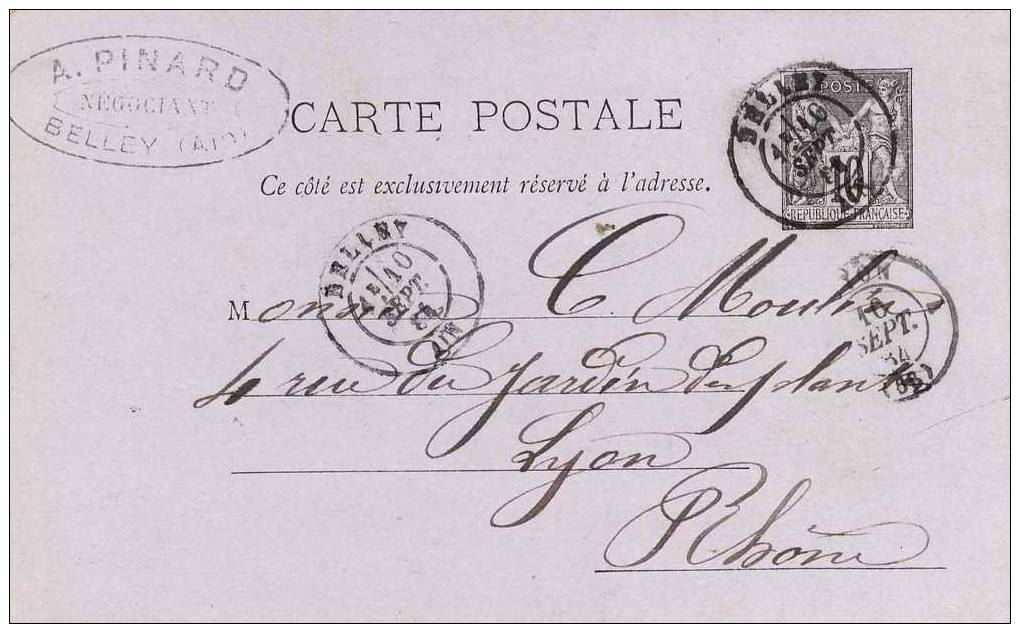 A. PINARD
NÉGOCIANT
BELLEY (AIN)
CARTE POSTALE
Ce côté est exclusivement réservé à l'adresse.
BELLEY
1E/10
SEPT.
POSTE
10
RÉPUBLIQUE FRANÇAISE
BELLEY
1E/10
SEPT.
84
AIN
Monsieur C. Moulin
10
SEPT.
84
4 rue du Jardin des plantes
Lyon
Rhône